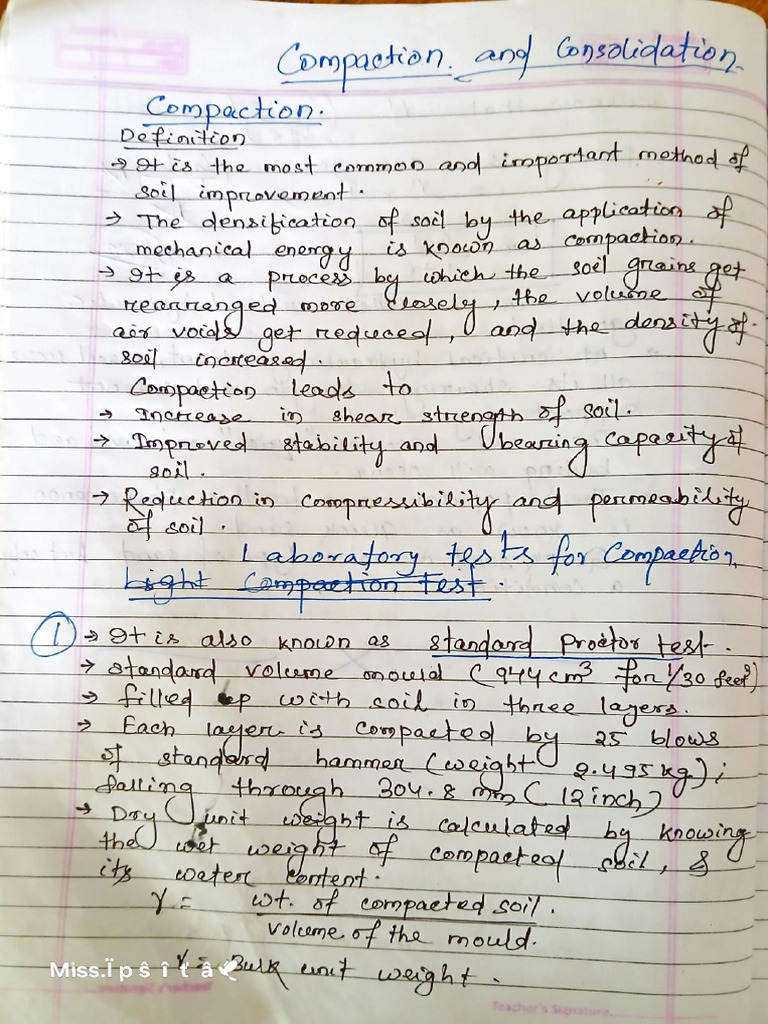 Compaction and Consolidation
Compaction.
Definition
→ It is the most common and important method of
soil improvement.
→ The densification of soil by the application of
mechanical energy is known as compaction.
→ It is a process by which the soil grains get
rearranged more closely, the volume of
air voids get reduced, and the density of
soil increased.
Compaction leads to
→ Increase in shear strength of soil.
→ Improved stability and bearing capacity of
soil.
→ Reduction in compressibility and permeability
of soil.
Laboratory tests for Compaction
Light Compaction Test.
① → It is also known as standard Proctor test.
→ standard volume mould (944 cm³ for 1/30 feet³)
→ filled up with soil in three layers.
→ Each layer is compacted by 25 blows
of standard hammer (weight 2.495 kg);
falling through 304.8 mm (12 inch)
→ Dry unit weight is calculated by knowing
the wet weight of compacted soil, &
its water content.
γ = wt. of compacted soil.
volume of the mould.
γ = Bulk unit weight.
Miss.Ïpŝîtâ
Teacher's Signature